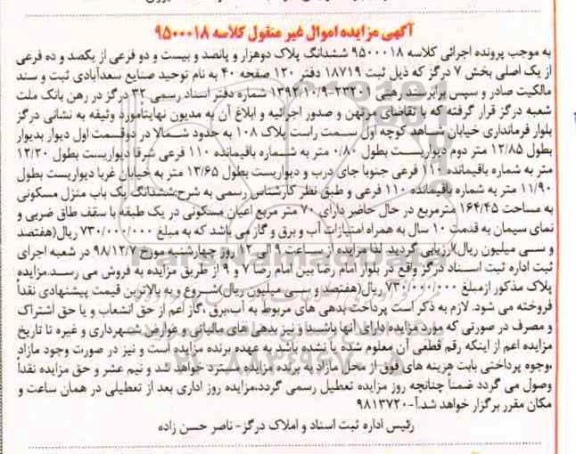 آگهی مزایده اموال غیر منقول کلاسه ۹۵۰۰۰۱۸
به موجب پرونده اجرائی کلاسه ۹۵۰۰۰۱۸ ششدانگ پلاک دوهزار و پانصد و بیست و دو فرعی از یکصد و ده فرعی
از یک اصلی بخش ۷ درگز که ذیل ثبت ۱۸۷۱۹ دفتر ۱۲۰ صفحه ۴۰ به نام توحید صنایع سعدآبادی ثبت و سند
مالکیت صادر و سپس برابر سند رهنی ۲۳۲۰۱-۱۳۹۲/۱۰/۹ شماره دفتر اسناد رسمی ۳۲ درگز در رهن بانک ملت
شعبه درگز قرار گرفته که با تقاضای مرتهن و صدور اجرائیه و ابلاغ آن به مدیون نهایتا مورد وثیقه به نشانی درگز
بلوار فرمانداری خیابان شاهد کوچه اول سمت راست پلاک ۱۰۸ به حدود شمالا در دوقسمت اول دیوار بدیوار
بطول ۱۲/۸۵ متر دوم دیواریست بطول ۰/۸۰ متر به شماره باقیمانده ۱۱۰ فرعی شرقا دیواریست بطول ۱۲/۲۰
متر به شماره باقیمانده ۱۱۰ فرعی جنوبا جای درب و دیواریست بطول ۱۳/۶۵ متر به خیابان غربا دیواریست بطول
۱۱/۹۰ متر به شماره باقیمانده ۱۱۰ فرعی و طبق نظر کارشناس رسمی به شرح:ششدانگ یک باب منزل مسکونی
به مساحت ۱۶۴/۴۵ مترمربع در حال حاضر دارای ۷۰ متر مربع اعیان مسکونی در یک طبقه با سقف طاق ضربی و
نمای سیمان به قدمت ۱۰ سال به همراه امتیازات آب و برق و گاز می باشد که به مبلغ ۷۳۰/۰۰۰/۰۰۰ ریال(هفتصد
و سی میلیون ریال)ارزیابی گردید لذا مزایده از ساعت ۹ الی ۱۲ روز چهارشنبه مورخ ۹۸/۱۲/۷ در شعبه اجرای
ثبت اداره ثبت اسناد درگز واقع در بلوار امام رضا بین امام رضا ۷ و ۹ از طریق مزایده به فروش می رسد.مزایده
پلاک مذکور ازمبلغ ۷۳۰/۰۰۰/۰۰۰ ریال(هفتصد و سی میلیون ریال)شروع و به بالاترین قیمت پیشنهادی نقداً
فروخته می شود. لازم به ذکر است پرداخت بدهی های مربوط به آب،برق ،گاز اعم از حق انشعاب و یا حق اشتراک
و مصرف در صورتی که مورد مزایده دارای آنها باشد و نیز بدهی های مالیاتی و عوارض شهرداری و غیره تا تاریخ
مزایده اعم از اینکه رقم قطعی آن معلوم شده یا نشده باشد به عهده برنده مزایده است و نیز در صورت وجود مازاد
،وجوه پرداختی بابت هزینه های فوق از محل مازاد به برنده مزایده مسترد خواهد شد و نیم عشر و حق مزایده نقداً
وصول می گردد ضمناً چنانچه روز مزایده تعطیل رسمی گردد،مزایده روز اداری بعد از تعطیلی در همان ساعت و
مکان مقرر برگزار خواهد شد.آ-۹۸۱۳۷۲۰
رئیس اداره ثبت اسناد و املاک درگز- ناصر حسن زاده